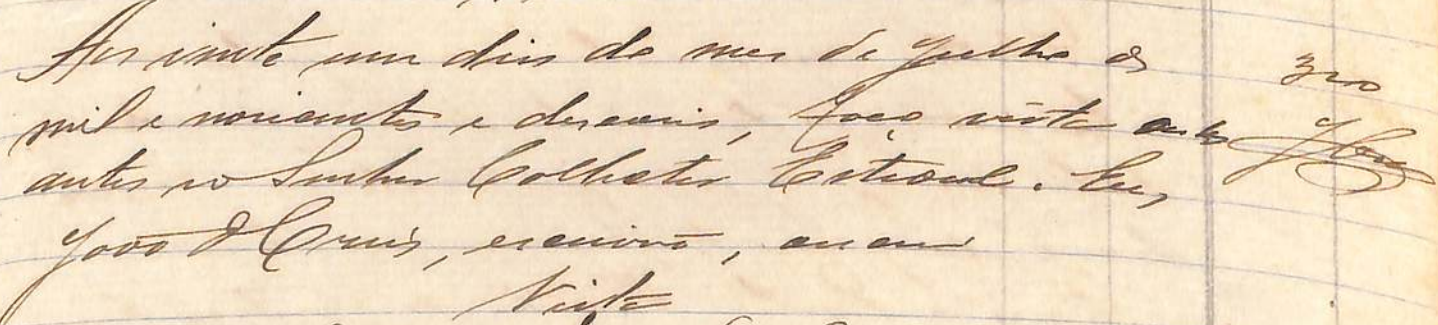 Aos vinte um dias do mez de Julho de
mil e novecentos e deseseis, faço vista
autos ao Senhor Collector Estadual. Eu,
João d Cruz, escrivão, escrevi
Vista